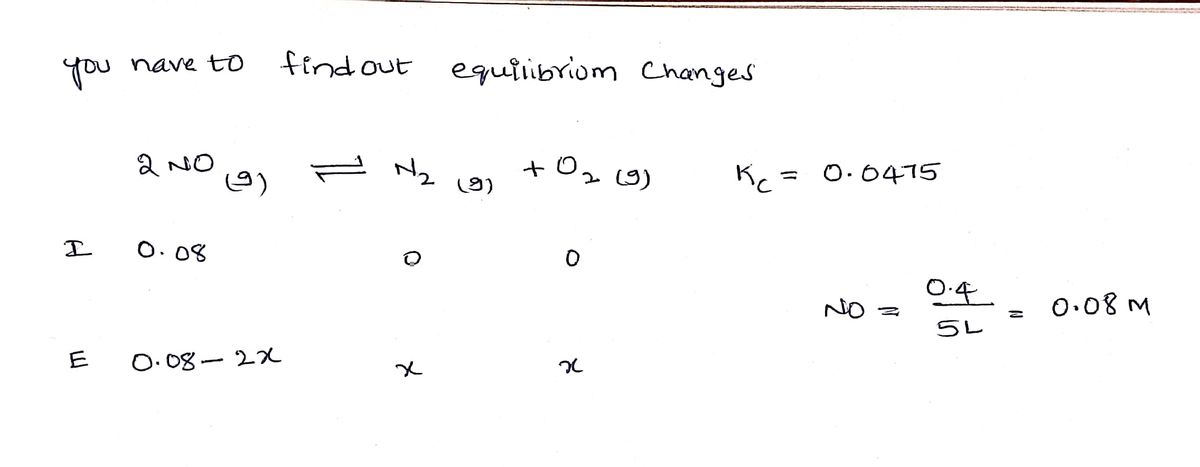 you have to find out equilibrium changes
2 NO (g) ⇌ N₂ (g) + O₂ (g) K_C = 0.0475
I 0.08 0 0
NO = 0.4 / 5L = 0.08 M
E 0.08 - 2x x x